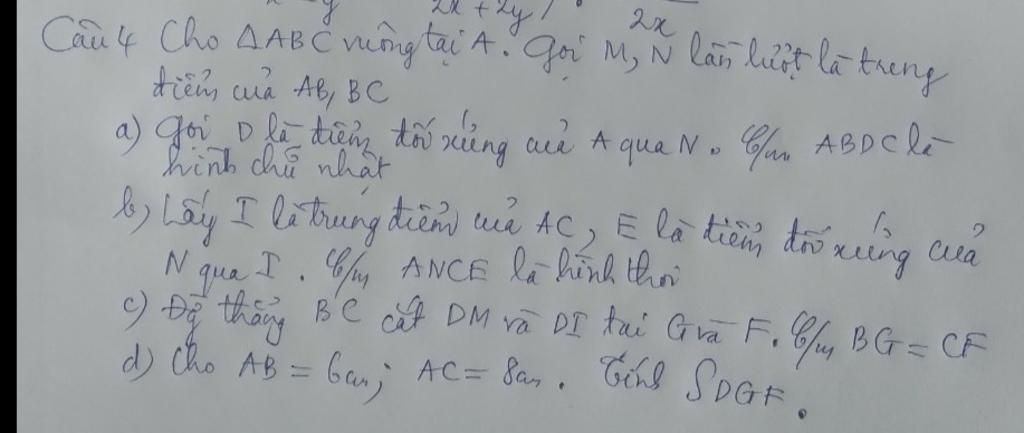 y 2x + 2y / 2x
Câu 4 Cho ΔABC vuông tại A. Gọi M, N lần lượt là trung
điểm của AB, BC
a) Gọi D là điểm đối xứng của A qua N. C/m ABDC là
hình chữ nhật
b) Lấy I là trung điểm của AC, E là điểm đối xứng của
N qua I. C/m ANCE là hình thoi
c) Đg thẳng BC cắt DM và DI tại G và F. C/m BG = CF
d) Cho AB = 6cm; AC = 8cm. Tính SDGF.